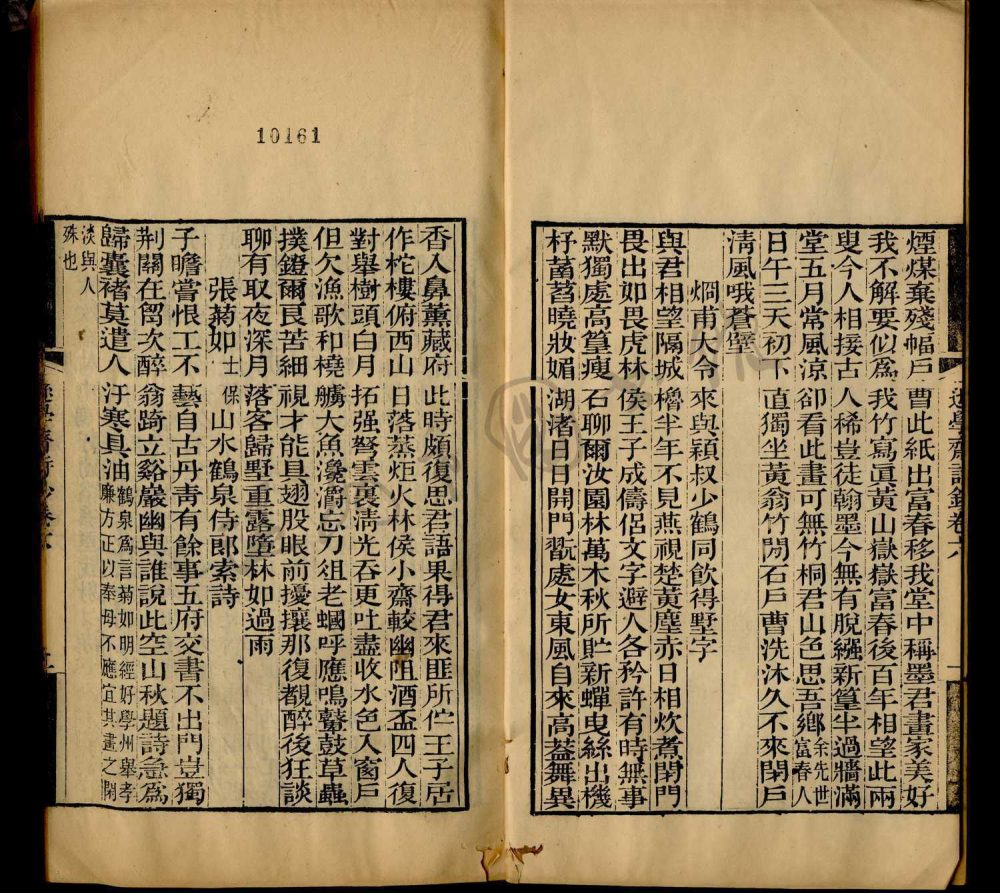 煙煤棄殘幅戶曹此紙出富春移我堂中稱墨君畫家美好
我不解要似為我竹寫眞黃山嶽嶽富春後百年相望此兩
叟今人相接古人稀豈徒翰墨今無有脫繈新篁半過牆滿
堂五月常風凉卻看此畫可無竹桐君山色思吾鄉余先世富春人
日午三天初下直獨坐黃翁竹閒石戶曹洗沐久不來閉戶
淸風哦蒼壁
烱甫大令來與穎叔少鶴同飲得墅字
與君相望隔城櫓半年不見燕視楚黃塵赤日相炊煮閉門
畏出如畏虎林侯王子成儔侶文字避人各矜許有時無事
默獨處高篁瘦石聊爾汝園林萬木秋所貯新蟬曳絲出機
杼菡萏曉妝媚湖渚日日開門翫處女東風自來高蓋舞異
遜學齋詩鈔卷六
10161
香入鼻薰藏府此時頗復思君語果得君來匪所伫王子居
作柁樓俯西山日落蒸炬火林侯小齋較幽阻酒盃四人復
對舉樹頭白月拓强弩雲裏淸光吞更吐盡收水色入窗戶
但欠漁歌和橈艣大魚瀺灂忘刀俎老蟈呼應鳴鼙鼓草蟲
撲鐙爾艮苦細視才能具翅股眼前擾攘那復覩醉後狂談
聊有取夜深月落客歸墅重露墮林如過雨
張菊如士保山水鶴泉侍郎索詩
子瞻嘗恨工不藝自古丹靑有餘事五府交書不出門豈獨
荆關在胷次醉翁踦立谿巖幽與誰說此空山秋題詩急為
歸囊褚莫遣人汙寒具油鶴泉爲言菊如明經好學州舉孝廉方正以奉母不應宜其畫之閑
淡與人殊也
遜學齋詩鈔卷六